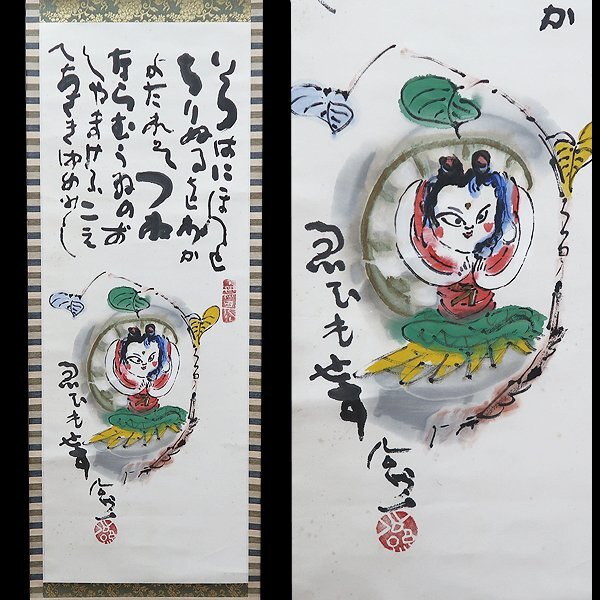 いろはにほへと
ちりぬるをわか
よたれそつね
ならむうゐのお
くやまけふこえ
てあさきゆめみし
ゑひもせす
か
ゑひもせす